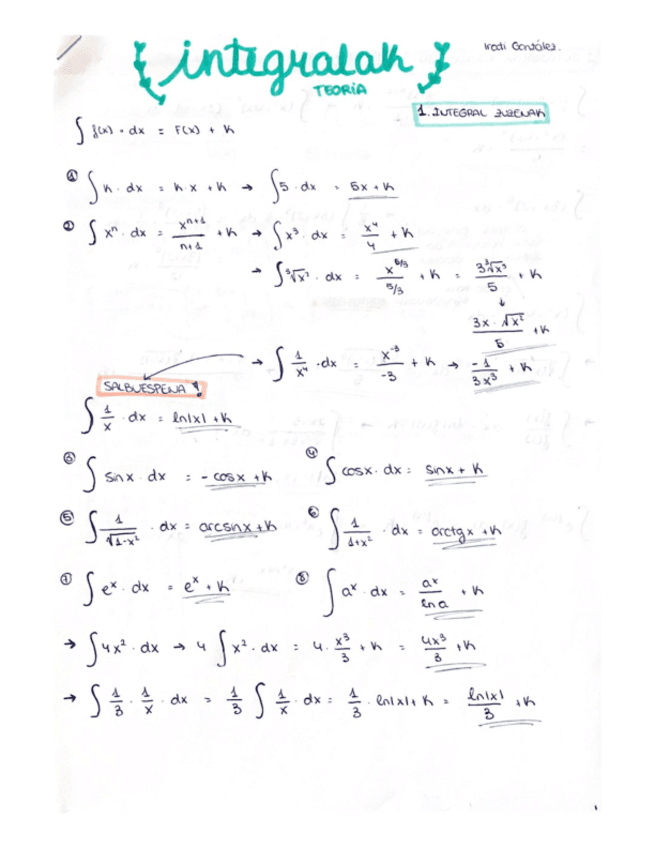 integralak
Iradi González.
TEORIA
1. INTEGRAL ZUZENAK
∫ f(x) · dx = F(x) + K
① ∫ K · dx = K · x + K → ∫ 5 · dx = 5x + K
② ∫ xⁿ · dx = xⁿ⁺¹/n+1 + K → ∫ x³ · dx = x⁴/4 + K
→ ∫ · dx = /5/3 + K = /5 + K
↓
3x · /5 + K
→ ∫ 1/x⁴ · dx = x⁻³/-3 + K → -1/3x³ + K
SALBUESPENA !
∫ 1/x · dx = ln|x| + K
③ ∫ sinx · dx = - cosx + K ④ ∫ cosx · dx = sinx + K
⑤ ∫ 1/√1-x² · dx = arcsinx + K ⑥ ∫ 1/1+x² · dx = arctgx + K
⑦ ∫ eˣ · dx = eˣ + K ⑧ ∫ aˣ · dx = aˣ/ln a + K
→ ∫ 4x² · dx → 4 ∫ x² · dx = 4 · x³/3 + K = 4x³/3 + K
→ ∫ 1/3 · 1/x · dx = 1/3 ∫ 1/x · dx = 1/3 · ln|x| + K = ln|x|/3 + K